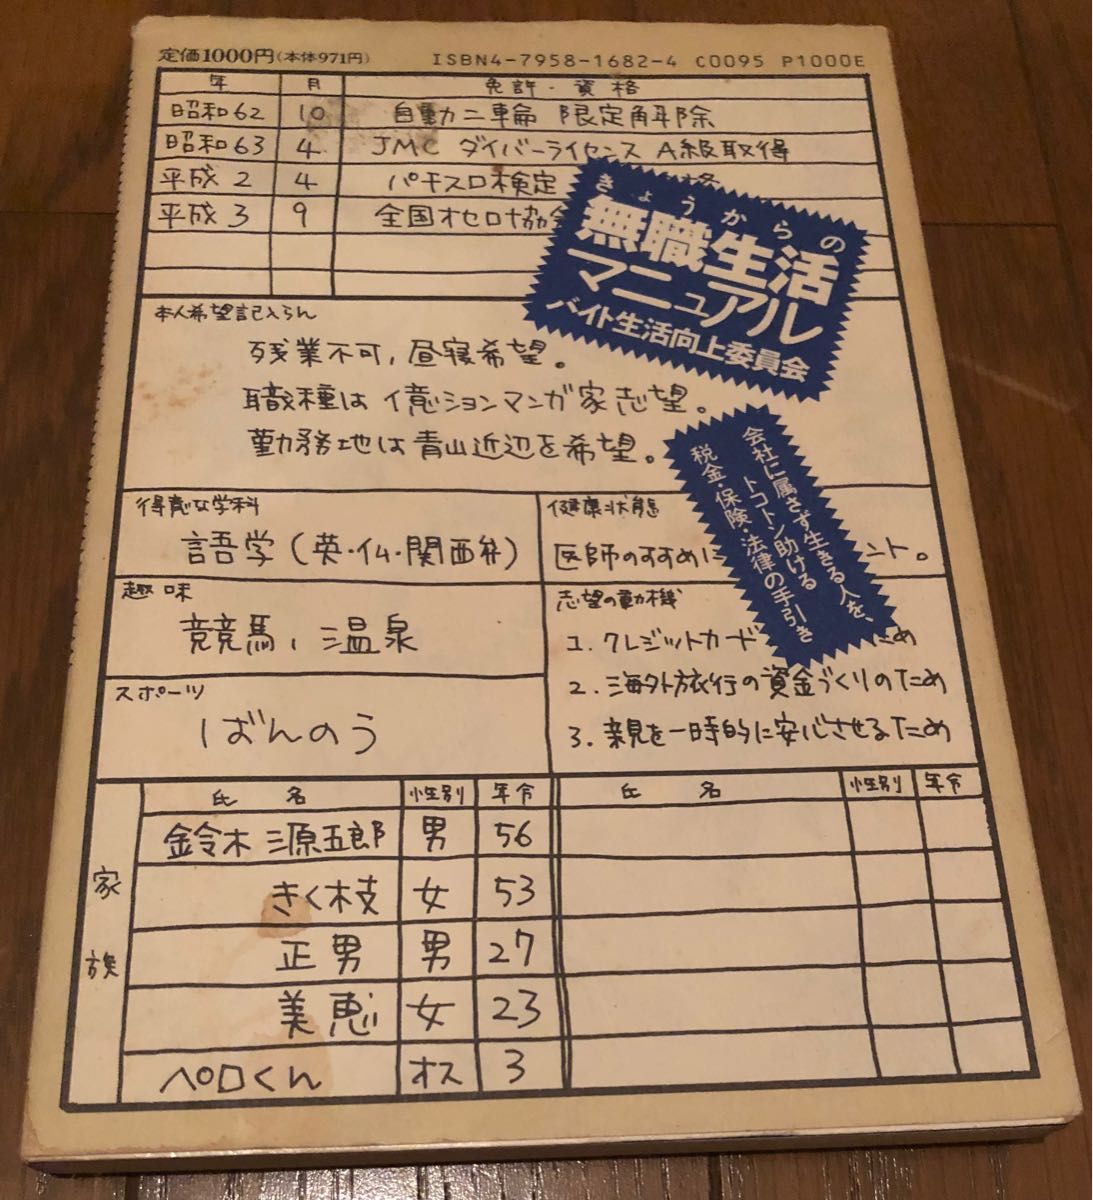 定価1000円(本体971円)
ISBN4-7958-1682-4 C0095 P1000E
年 月 免許・資格
昭和62 10 自動力二輪 限定解除
昭和63 4 JMC ダイバーライセンス A級取得
平成2 4 パチスロ検定
平成3 9 全国オセロ協会
きょうからの
無職生活
マニュアル
バイト生活向上委員会
会社に属さず生きる人を、
トコトン助ける
税金・保険・法律の手引き
本人希望記入らん
残業不可、昼寝希望。
職種は億ションマンガ家志望。
勤務地は青山近辺を希望。
得意な学科
語学(英・仏・関西弁)
健康状態
医師のすすめに ント。
趣味
競馬、温泉
スポーツ
ばんのう
志望の動機
1. クレジットカード ため
2. 海外旅行の資金づくりのため
3. 親を一時的に安心させるため
家族
氏名 性別 年令 氏名 性別 年令
鈴木 源五郎 男 56
きく枝 女 53
正男 男 27
美恵 女 23
ペロくん オス 3